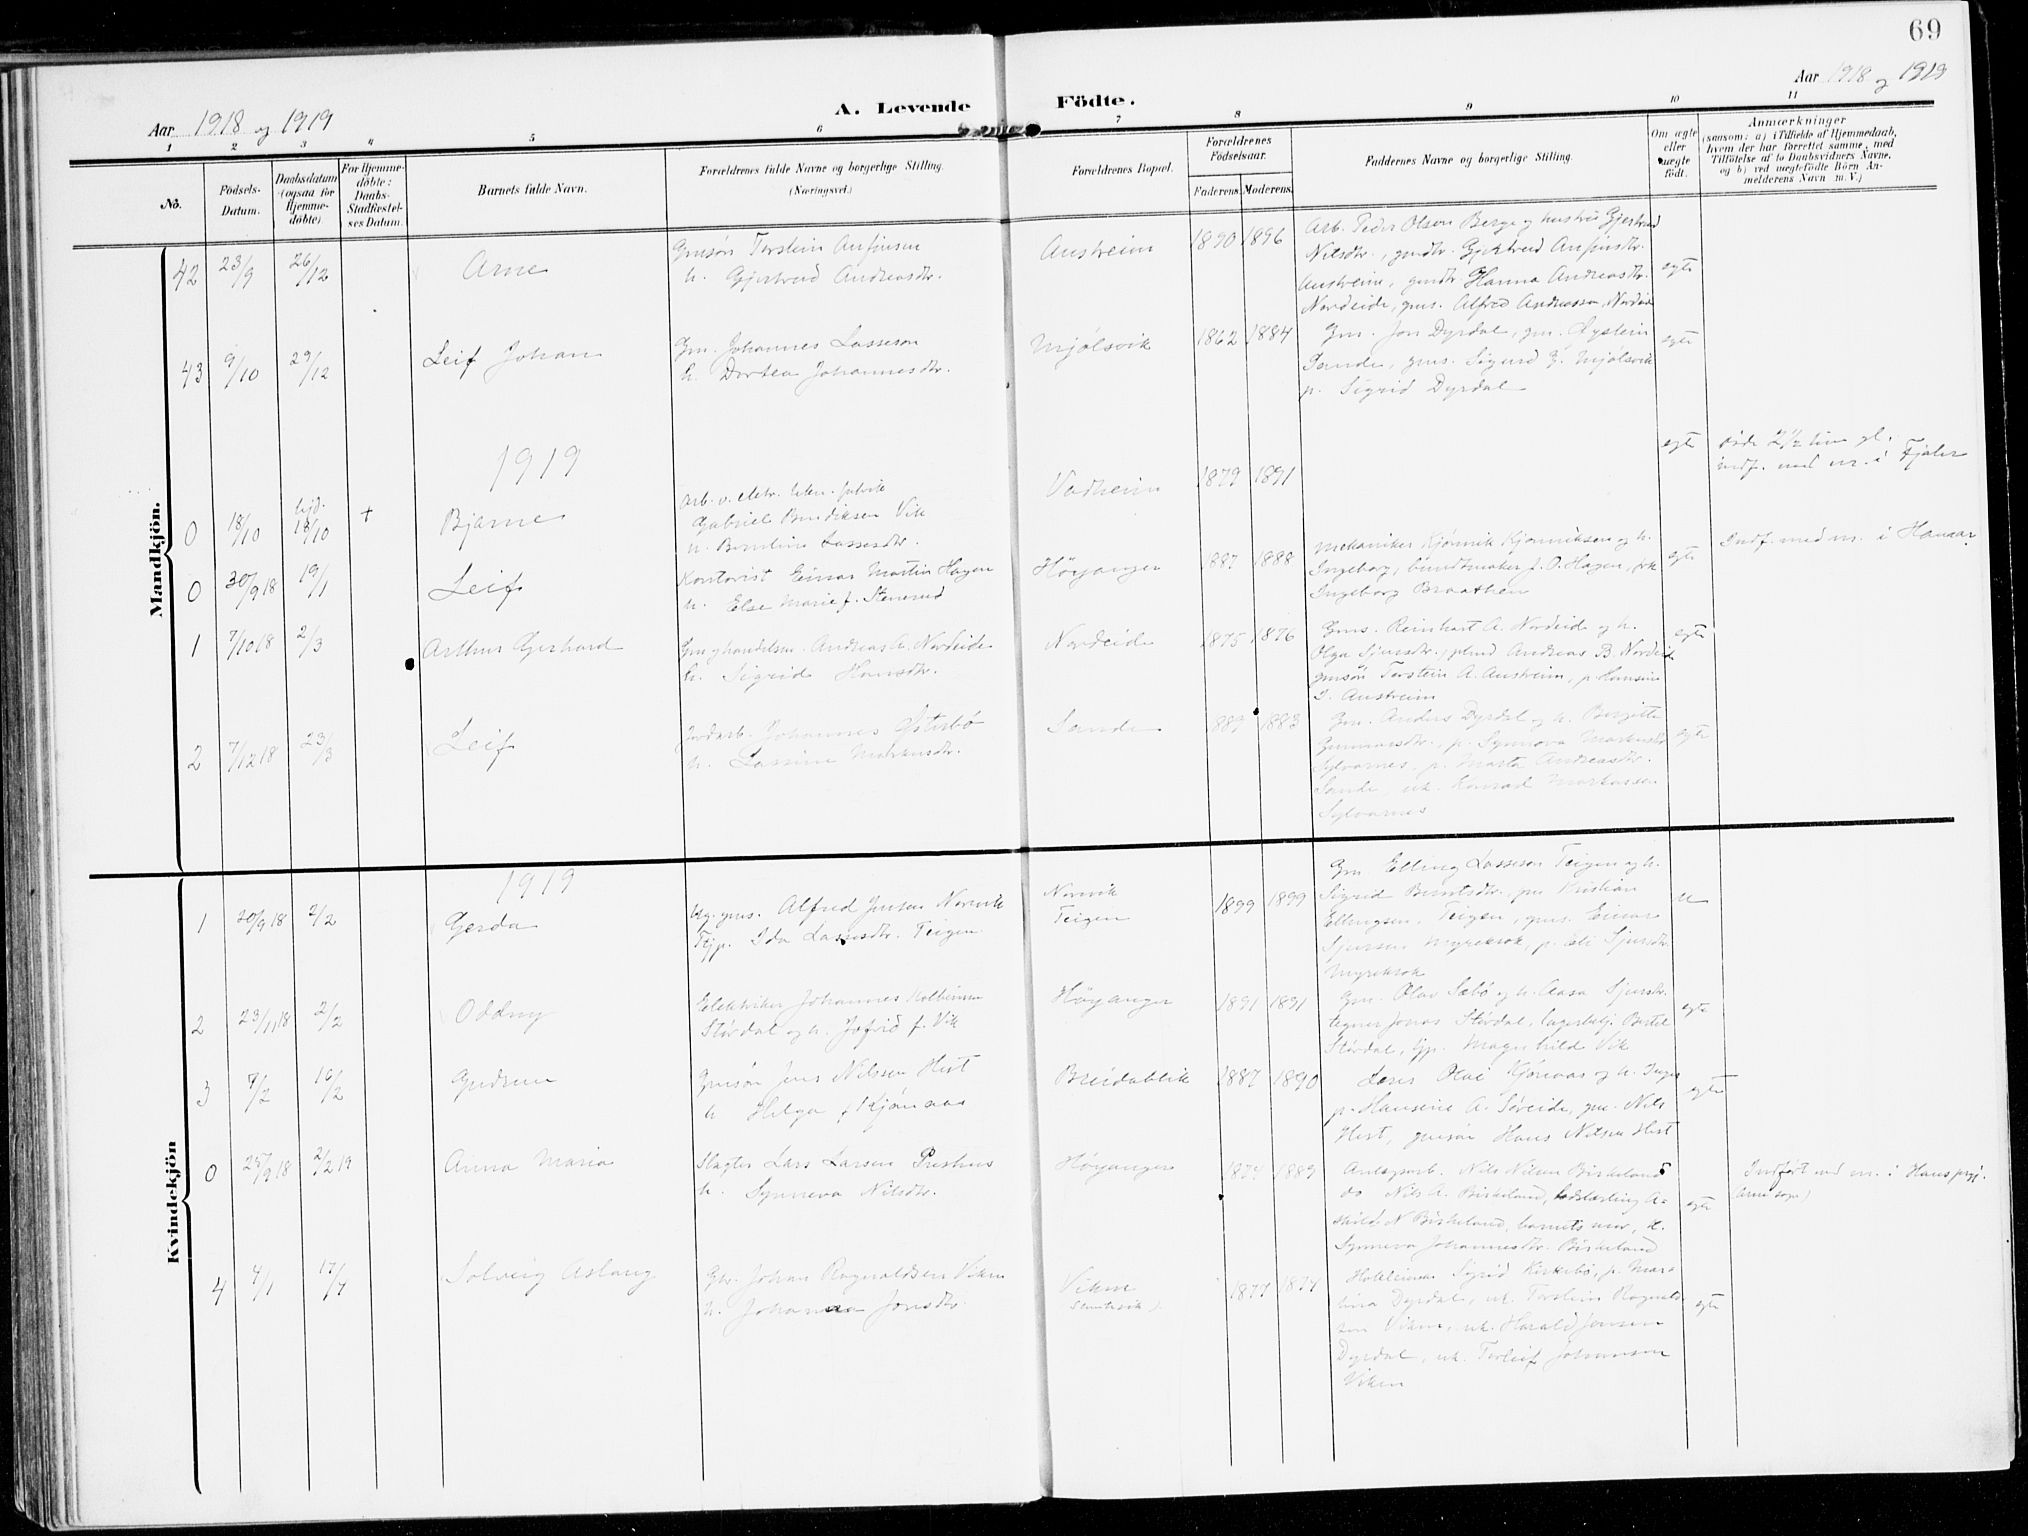 69
Aar 1918 og 1919
A. Levende Födte.
Aar 1918 og 1919
1 2 3 4 5 6 7 8 9 10 11
No.
Födsels-Datum.
Daabsdatum (ogsaa for Hjemme-döbte)
For Hjemme-döbte: Daabs-Stadfæstel-ses Datum.
Barnets fulde Navn.
Forældrenes fulde Navne og borgerlige Stilling. (Næringsvei.)
Forældrenes Bopæl.
Forældrenes Födselsaar.
Faderens. Moderens.
Faddernes Navne og borgerlige Stilling.
Om ægte eller uægte födt.
Anmærkninger
(saasom: a) i Tilfælde af Hjemmedaab, hvem der har forrettet samme, med Tilföielse af to Daabsvidners Navne, og b) ved uægtefödte Börn An-melderens Navn m. V.)
Mandkjön.
42 23/9 26/12 Arne
Gmsøn Torstein Anfinsen
h. Gjertrud Andreasdtr.
Austreim 1890 1896
Arb. Peder Olsen Berge og hustru Gjertrud
Nilsdtr., gmdtr. Gjertrud Anfinsdtr.
Austreim, gmdtr Hanna Andreasdtr.
Nordeide, gms. Alfred Andreassen, Nordeide
egte
43 9/10 29/12 Leif Johan
Gm. Johannes Lasseson
h. Dortea Johannesdtr.
Mjølsvik 1862 1884
Gm. Jon Dyrdal, gm. Øystein
Sande, gms. Sigurd J. Mjølsvik
p. Sigrid Dyrdal
egte
1919
0 18/10 hjd. 18/10 + Bjarne
Gabriel Bendiksen Vik
h. Berntine Lassesdtr.
Vadheim 1879 1891
egte
døde 2 1/2 time gl.
indf. med nr. i Fjaler
0 30/9 18 19/1 Leif
Kontorist Einar Martin Hagen
h. Else Marie f. Stenerud
Høyanger 1887 1888
Mekaniker Kjønnik Kjønniksen og h.
Ingeborg, bundtmaker J. O. Hagen, frk
Ingeborg Braathen
egte
Indf. med nr. i Hamar
1 7/10 18 2/3 Arthur Gerhard
Gm og handelsm. Andreas A. Nordeide
h. Sigrid Hansdtr.
Nordeide 1875 1876
Gms. Reinhart A. Nordeide og h.
Olga Sjursdtr., Andreas B. Nordeide
gmsøn Torstein A. Austreim, p. Hansine
J. Austreim
egte
2 7/12 18 23/3 Leif
Jordarb. Johannes Østerbø
h. Lassine Markusdtr.
Sande 1889 1883
Gm. Anders Dyrdal og h. Bergitte
Gunnarsdtr., p. Synnøva Markusdtr
Sylvarnes, p. Marta Andreasdtr.
Sande, uk. Konrad Markussen
Sylvarnes
egte
Kvindekjön
1919
1 20/9 18 2/2 Gerda
Ug. gms. Alfred Jensen Norevik
Tjp. Ida Lassesdtr. Teigen
Norevik
Teigen
1899 1899
Gm. Elling Lasseson Teigen og h.
Sigrid Berntsdtr., gm Kristian
Ellingsen, Teigen, gms. Einar
Sjursen Myrekrok, p. Eli Sjursdtr.
Myrekrok
u
2 23/11 18 2/2 Oddny
Elektriker Johannes Kolbeinsen
Størdal og h. Jofrid f. Vik
Høyanger 1891 1891
Gm. Olav Sæbø og h. Aasa Sjursdtr.
tegner Jonas Størdal, lagerbetj. Bertel
Størdal, tjp. Magnhild Vik
egte
3 7/2 16/2 Gudrun
Gmsøn Jens Nilssen Hest
h Helga f Kjønaas
Breidablik 1887 1890
Lærer Olai Kjønaas og h. Inger
p. Hansine A. Søreide, gm. Nils
Hest, gmsøn Hans Nilsen Hest
egte
0 25/9 18 2/2 19 Anna Maria
Slagter Lars Larsen Presthus
h. Synneva Nilsdtr.
Høyanger 1874 1889
Anlægsarb. Nils Nilsen Birkeland
do Nils A. Birkeland,
N Birkeland, barnets mor, k.
Synneva Johannesdtr. Birkeland
egte
Indført med nr. i Haus prgj.
(Arne sogn)
4 4/1 17/7 Solveig Aslaug
Gbr. Johan Ragnvaldsen Viken
h. Johanna Jonsdtr.
Viken
1877 1877
Hoteleierske Sigrid Kirkebø, p. Mar-
tina Dyrdal, uk. Torstein Ragnvald-
sen Viken, uk. Harald Jensen
Dyrdal, uk. Torleif Johansen
Viken
egte